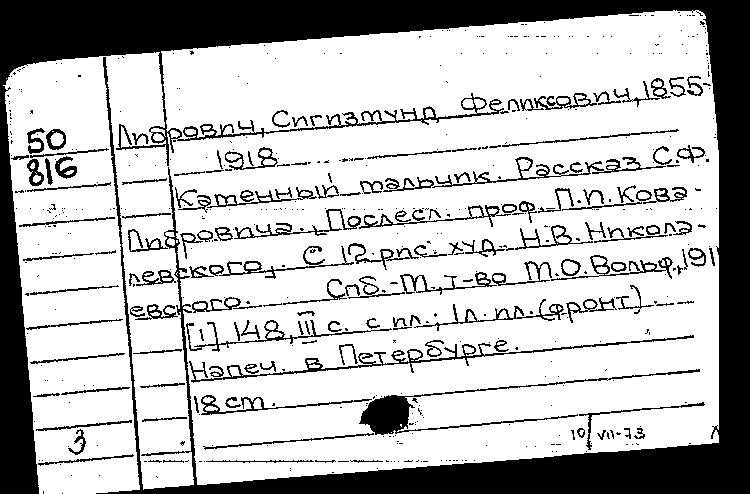 50
816
Либрович, Сигизмунд Феликсович, 1855-
1918
Каменный мальчик. Рассказ С.Ф.
Либровича. Послесл. проф. П.И. Кова-
левского. С 12 рис. худ. Н.В. Никола-
евского. Спб.-М., т-во М.О. Вольф, 191
[1], 148, III с. с ил.; 1 л. ил. (фронт).
Напеч. в Петербурге.
18 cm.
3
10/VII-73